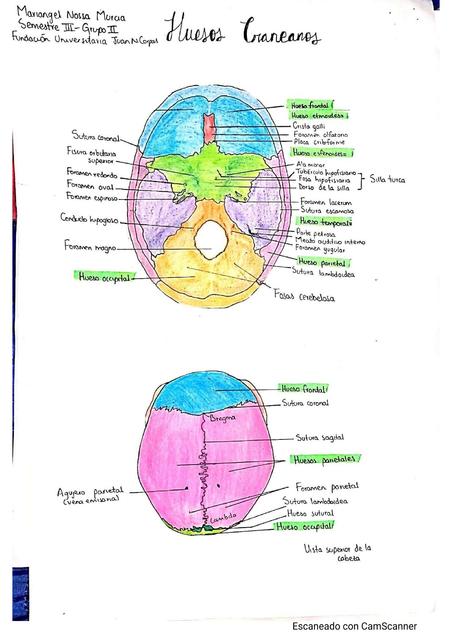 Mariangel Nossa Murcia
Semestre III - Grupo II
Fundación Universitaria Juan N Corpas
Huesos Craneanos
Hueso frontal
Hueso etmoides
Crista galli
Foramen olfatorio
Placa cribiforme
Hueso esfenoides
Ala menor
Tubérculo hipofisiario
Fosa hipofisiaria
Dorso de la silla
Silla turca
Foramen lacerum
Sutura escamosa
Hueso temporal
Parte petrosa
Meato auditivo interno
Foramen yugular
Hueso parietal
Sutura lambdoidea
Fosas cerebelosa
Sutura coronal
Fisura orbitaria
superior
Foramen redondo
Foramen oval
Foramen espinoso
Conducto hipogloso
Foramen magno
Hueso occipital
Hueso frontal
Sutura coronal
Bregma
Sutura sagital
Huesos parietales
Foramen parietal
Agujero parietal
(vena emisaria)
Sutura lambdoidea
Lambda
Hueso sutural
Hueso occipital
Vista superior de la
cabeza
Escaneado con CamScanner